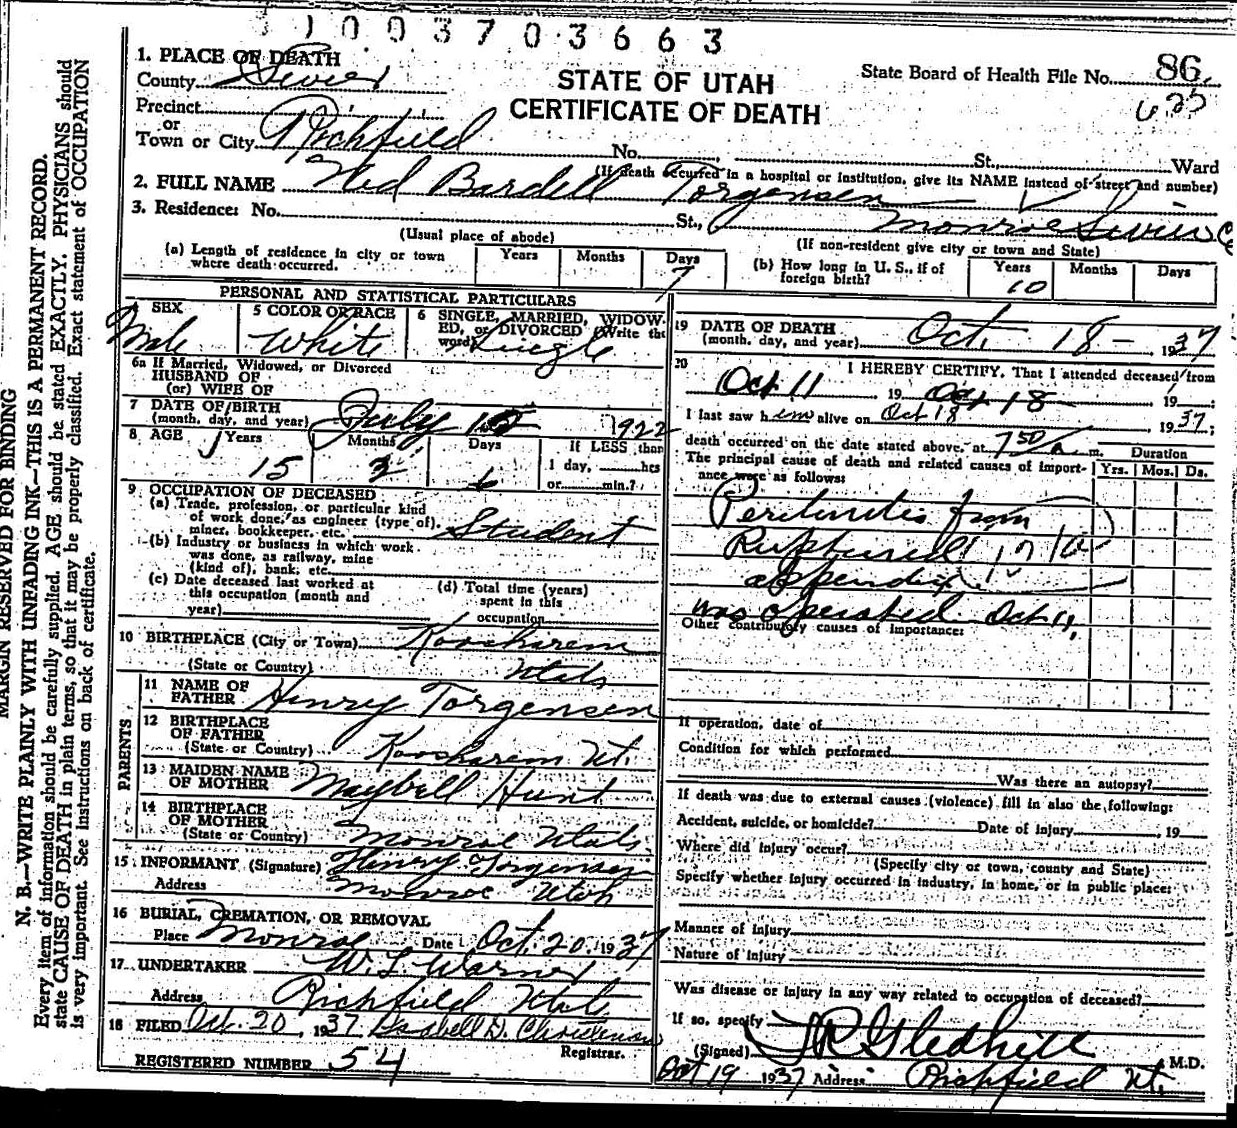 1003703663
1. PLACE OF DEATH
County Sevier
STATE OF UTAH
CERTIFICATE OF DEATH
State Board of Health File No. 86
625
Precinct
or
Town or City Richfield No. St. Ward
(If death occurred in a hospital or institution, give its NAME instead of street and number)
2. FULL NAME Ned Bardell Torgensen
3. Residence: No. St., Monroe Sevier Co
(Usual place of abode) (If non-resident give city or town and State)
(a) Length of residence in city or town where death occurred. Years Months Days 7
(b) How long in U. S., if of foreign birth? Years 10 Months Days
PERSONAL AND STATISTICAL PARTICULARS
SEX Male
5 COLOR OR RACE White
6 SINGLE, MARRIED, WIDOWED, or DIVORCED (Write the word) Single
6a If Married, Widowed, or Divorced
HUSBAND OF
(or) WIFE OF
7 DATE OF BIRTH
(month, day, and year) July 1922
8 AGE Years 15 Months 3 Days 6 If LESS than
1 day, hrs
or min.?
9 OCCUPATION OF DECEASED
(a) Trade, profession, or particular kind
of work done, as engineer (type of),
miner, bookkeeper, etc. Student
(b) Industry or business in which work
was done, as railway, mine
(kind of), bank, etc.
(c) Date deceased last worked at
this occupation (month and
year)
(d) Total time (years)
spent in this
occupation
10 BIRTHPLACE (City or Town) Koosharem
(State or Country) Utah
PARENTS
11 NAME OF
FATHER Henry Torgensen
12 BIRTHPLACE
OF FATHER
(State or Country) Koosharem Ut.
13 MAIDEN NAME
OF MOTHER Maybell Hunt
14 BIRTHPLACE
OF MOTHER
(State or Country) Monroe Utah
15 INFORMANT (Signature) Henry Torgensen
Address Monroe Utah
16 BURIAL, CREMATION, OR REMOVAL
Place Monroe Date Oct. 20 1937
17 UNDERTAKER W. L. Warner
Address Richfield Utah
18 FILED Oct. 20 1937 Isabell D. Christensen
Registrar.
REGISTERED NUMBER 54
19 DATE OF DEATH
(month, day, and year) Oct. 18 - 1937
20 I HEREBY CERTIFY, That I attended deceased from
Oct 11 19 Oct 18 19 ;
I last saw him alive on Oct 18 1937;
death occurred on the date stated above, at 7 50/a m.
The principal cause of death and related causes of importance were as follows:
Duration
Yrs. Mos. Ds.
Peritonitis from
Ruptured
appendix
was operated Oct 11,
Other contributory causes of importance:
If operation, date of
Condition for which performed
Was there an autopsy?
If death was due to external causes (violence) fill in also the following:
Accident, suicide, or homicide? Date of injury , 19
Where did injury occur?
(Specify city or town, county and State)
Specify whether injury occurred in industry, in home, or in public place:
Manner of injury
Nature of injury
Was disease or injury in any way related to occupation of deceased?
If so, specify
(Signed) J R Gledhill M.D.
Oct 19 1937 Address Richfield Ut.
MARGIN RESERVED FOR BINDING
N. B.—WRITE PLAINLY WITH UNFADING INK—THIS IS A PERMANENT RECORD.
Every item of information should be carefully supplied. AGE should be stated EXACTLY. PHYSICIANS should
state CAUSE OF DEATH in plain terms, so that it may be properly classified. Exact statement of OCCUPATION
is very important. See instructions on back of certificate.